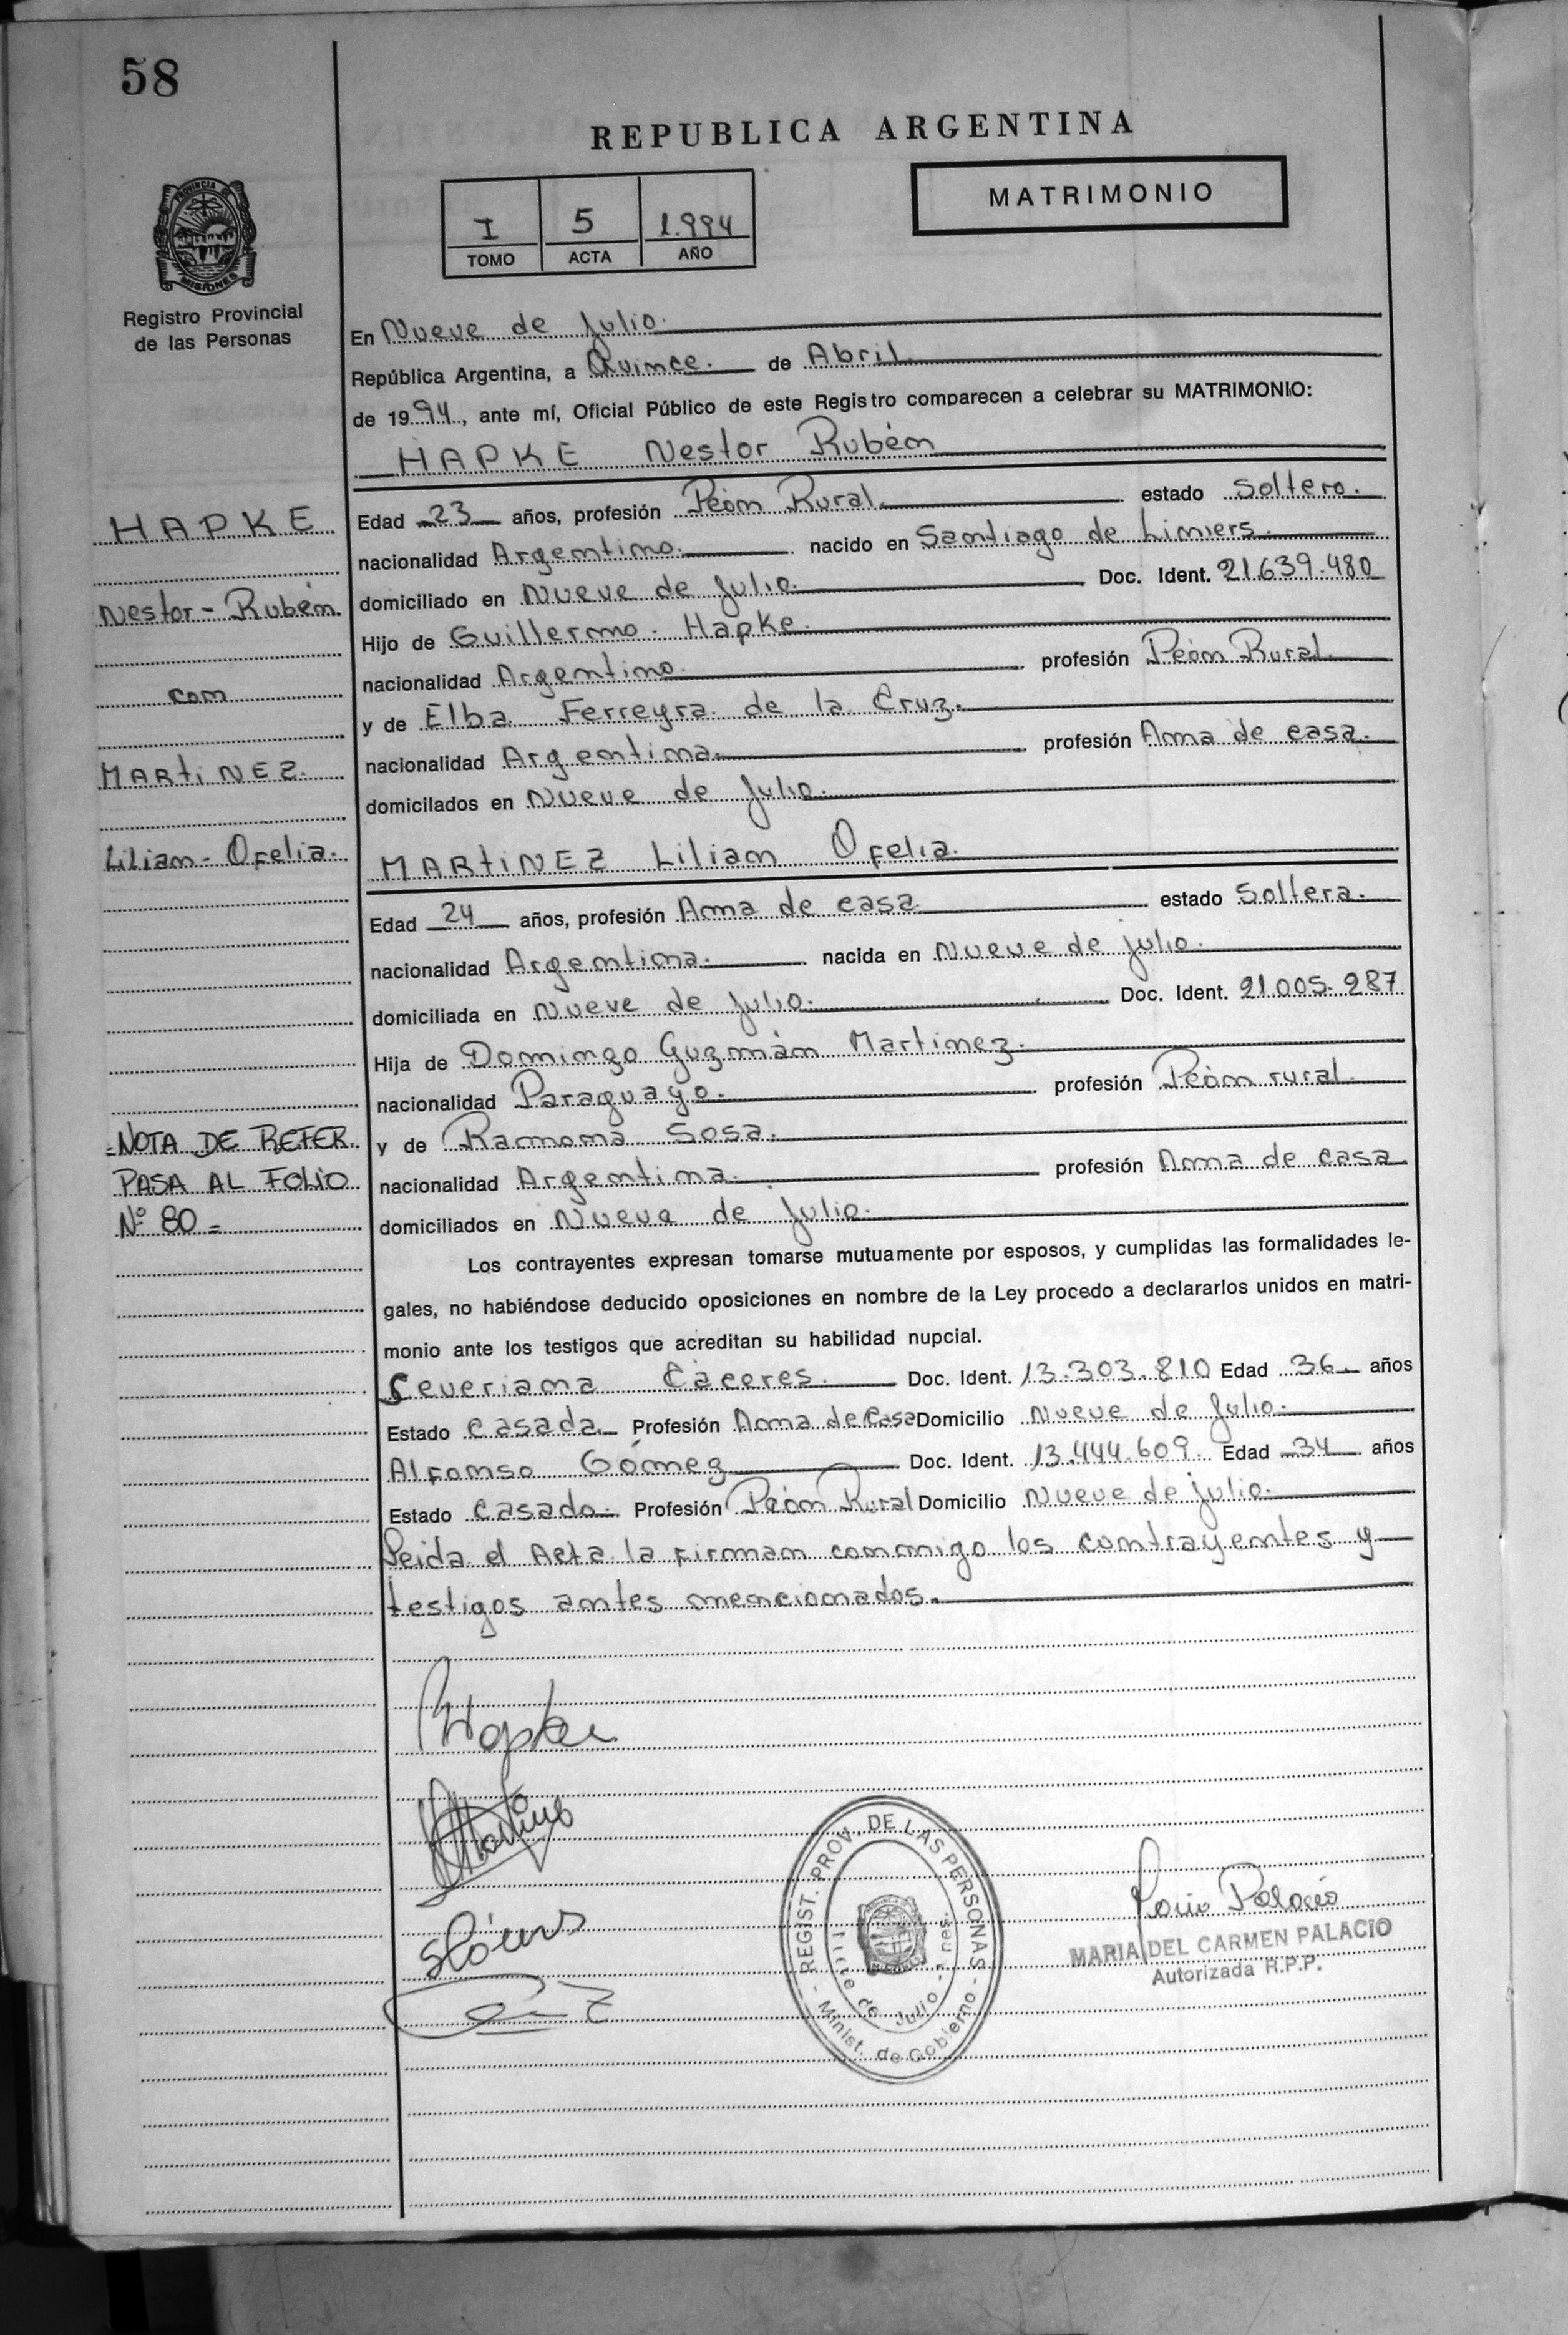 58
REPUBLICA ARGENTINA
MATRIMONIO
I 5 1.994
TOMO ACTA AÑO
PROVINCIA DE
MISIONES
Registro Provincial
de las Personas
En Nueve de Julio.
República Argentina, a Quince. de Abril
de 1994, ante mí, Oficial Público de este Registro comparecen a celebrar su MATRIMONIO:
HAPKE Nestor Rubén
HAPKE
Nestor - Rubén.
con
MARtiNEZ.
Lilian - Ofelia.
Edad 23 años, profesión Peón Rural. estado Soltero.
nacionalidad Argentino. nacido en Santiago de Liniers.
domiciliado en Nueve de Julio. Doc. Ident. 21.639.480
Hijo de Guillermo. Hapke.
nacionalidad Argentino. profesión Peón Rural.
y de Elba Ferreyra de la Cruz.
nacionalidad Argentina. profesión Ama de casa.
domicilados en Nueve de Julio.
MARtiNEZ Lilian Ofelia.
Edad 24 años, profesión Ama de casa estado Soltera.
nacionalidad Argentina. nacida en Nueve de julio.
domiciliada en Nueve de Julio. Doc. Ident. 21.005.287
Hija de Domingo Guzmán Martinez.
nacionalidad Paraguayo. profesión Peón rural
y de Ramona Sosa.
nacionalidad Argentina. profesión Ama de casa
domiciliados en Nueve de Julio.
=NOTA DE REFER.
PASA AL FOLIO
Nº 80=
Los contrayentes expresan tomarse mutuamente por esposos, y cumplidas las formalidades le-
gales, no habiéndose deducido oposiciones en nombre de la Ley procedo a declararlos unidos en matri-
monio ante los testigos que acreditan su habilidad nupcial.
Ceveriana Cáceres. Doc. Ident. 13.303.810 Edad 36 años
Estado Casada. Profesión Ama de Casa Domicilio Nueve de Julio.
Alfonso Gómez Doc. Ident. 13.444.609. Edad 34 años
Estado Casado. Profesión Peón Rural Domicilio Nueve de julio.
Leida el Acta la firman conmigo los contrayentes y
testigos antes mencionados.
Hapke
Martinez
REGIST. PROV. DE LAS PERSONAS
de Julio
Minist. de Gobierno
Palacio
MARIA DEL CARMEN PALACIO
Autorizada R.P.P.